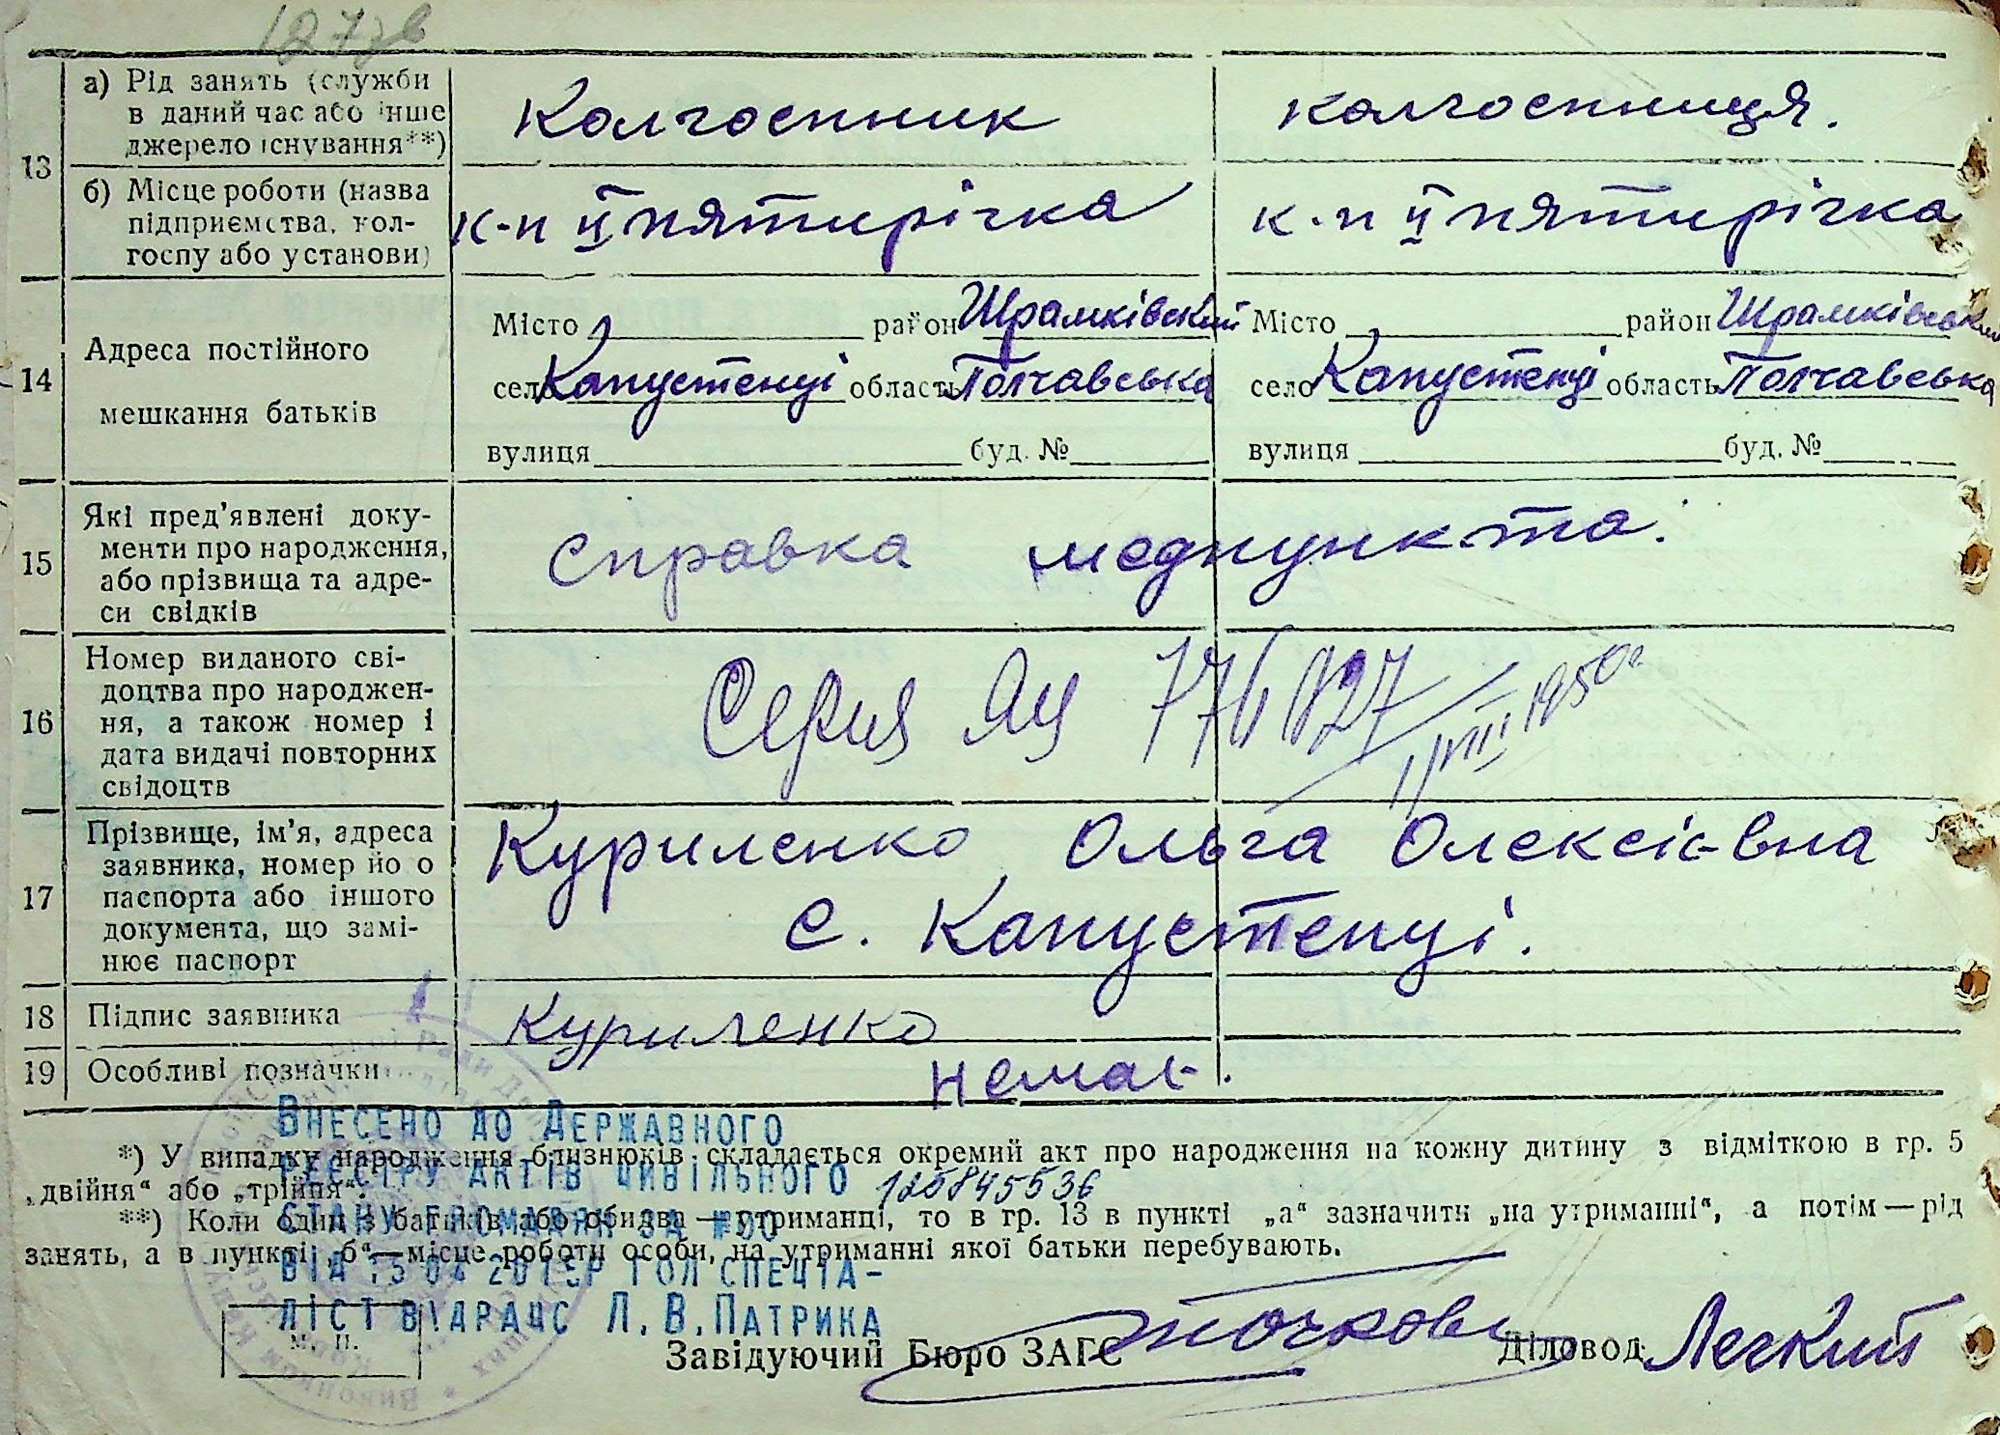 13
а) Рід занять (служби в даний час або інше джерело існування**)
Колгоспник
колгоспниця.
б) Місце роботи (назва підприємства, колгоспу або установи)
к-п ІІ пятирічка
к-п ІІ пятирічка
14
Адреса постійного мешкання батьків
Місто район Шрамківський
село Капустенці область Полтавська
вулиця буд. №
Місто район Шрамківський
село Капустенці область Полтавська
вулиця буд. №
15
Які пред'явлені документи про народження, або прізвища та адреси свідків
справка медпункта.
16
Номер виданого свідоцтва про народження, а також номер і дата видачі повторних свідоцтв
Серия ЯЦ 776027
VIII 1950г
17
Прізвище, ім'я, адреса заявника, номер його паспорта або іншого документа, що замінює паспорт
Куриленко Ольга Олексієвна
с. Капустенці.
18
Підпис заявника
Куриленко
19
Особливі позначки
немає.
*) У випадку народження близнюків складається окремий акт про народження на кожну дитину з відміткою в гр. 5
„двійня“ або „трійня“.
**) Коли один з батьків або обидва — утриманці, то в гр. 13 в пункті „а“ зазначити „на утриманні“, а потім — рід
занять, а в пункті „б“ — місце роботи особи, на утриманні якої батьки перебувають.
Внесено до Державного
реєстру актів цивільного 125845536
стану громадян за №00
від
гол спеціа-
ліст ВДРАЦС Л. В. Патрика
М. П.
Завідуючий Бюро ЗАГС
Діловод Легкий